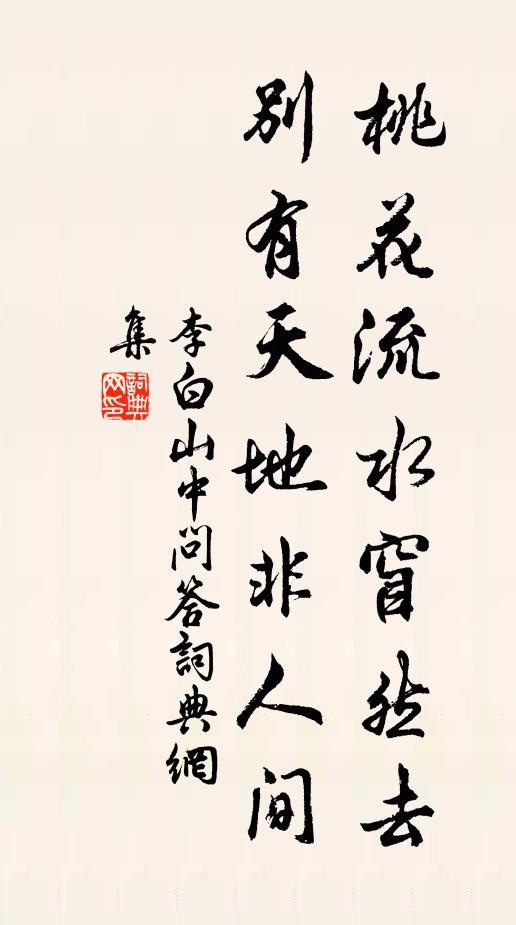 桃花流水窅然去
別有天地非人间
李白山中問答詞典網
集
詞典
网印